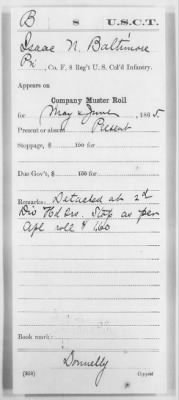 B 8 U.S.C.T.
Isaac N. Baltimore
Pri, Co. F, 8 Reg't U. S. Col'd Infantry.
Appears on
Company Muster Roll
for May & June, 1865
Present or absent Present
Stoppage, $ 100 for
Due Gov't, $ 100 for
Remarks: Detached at 2d
Div Hd Qrs. Stop as per
Apl roll $ 1.60
Book mark:
Donnelly
(358) Copyist